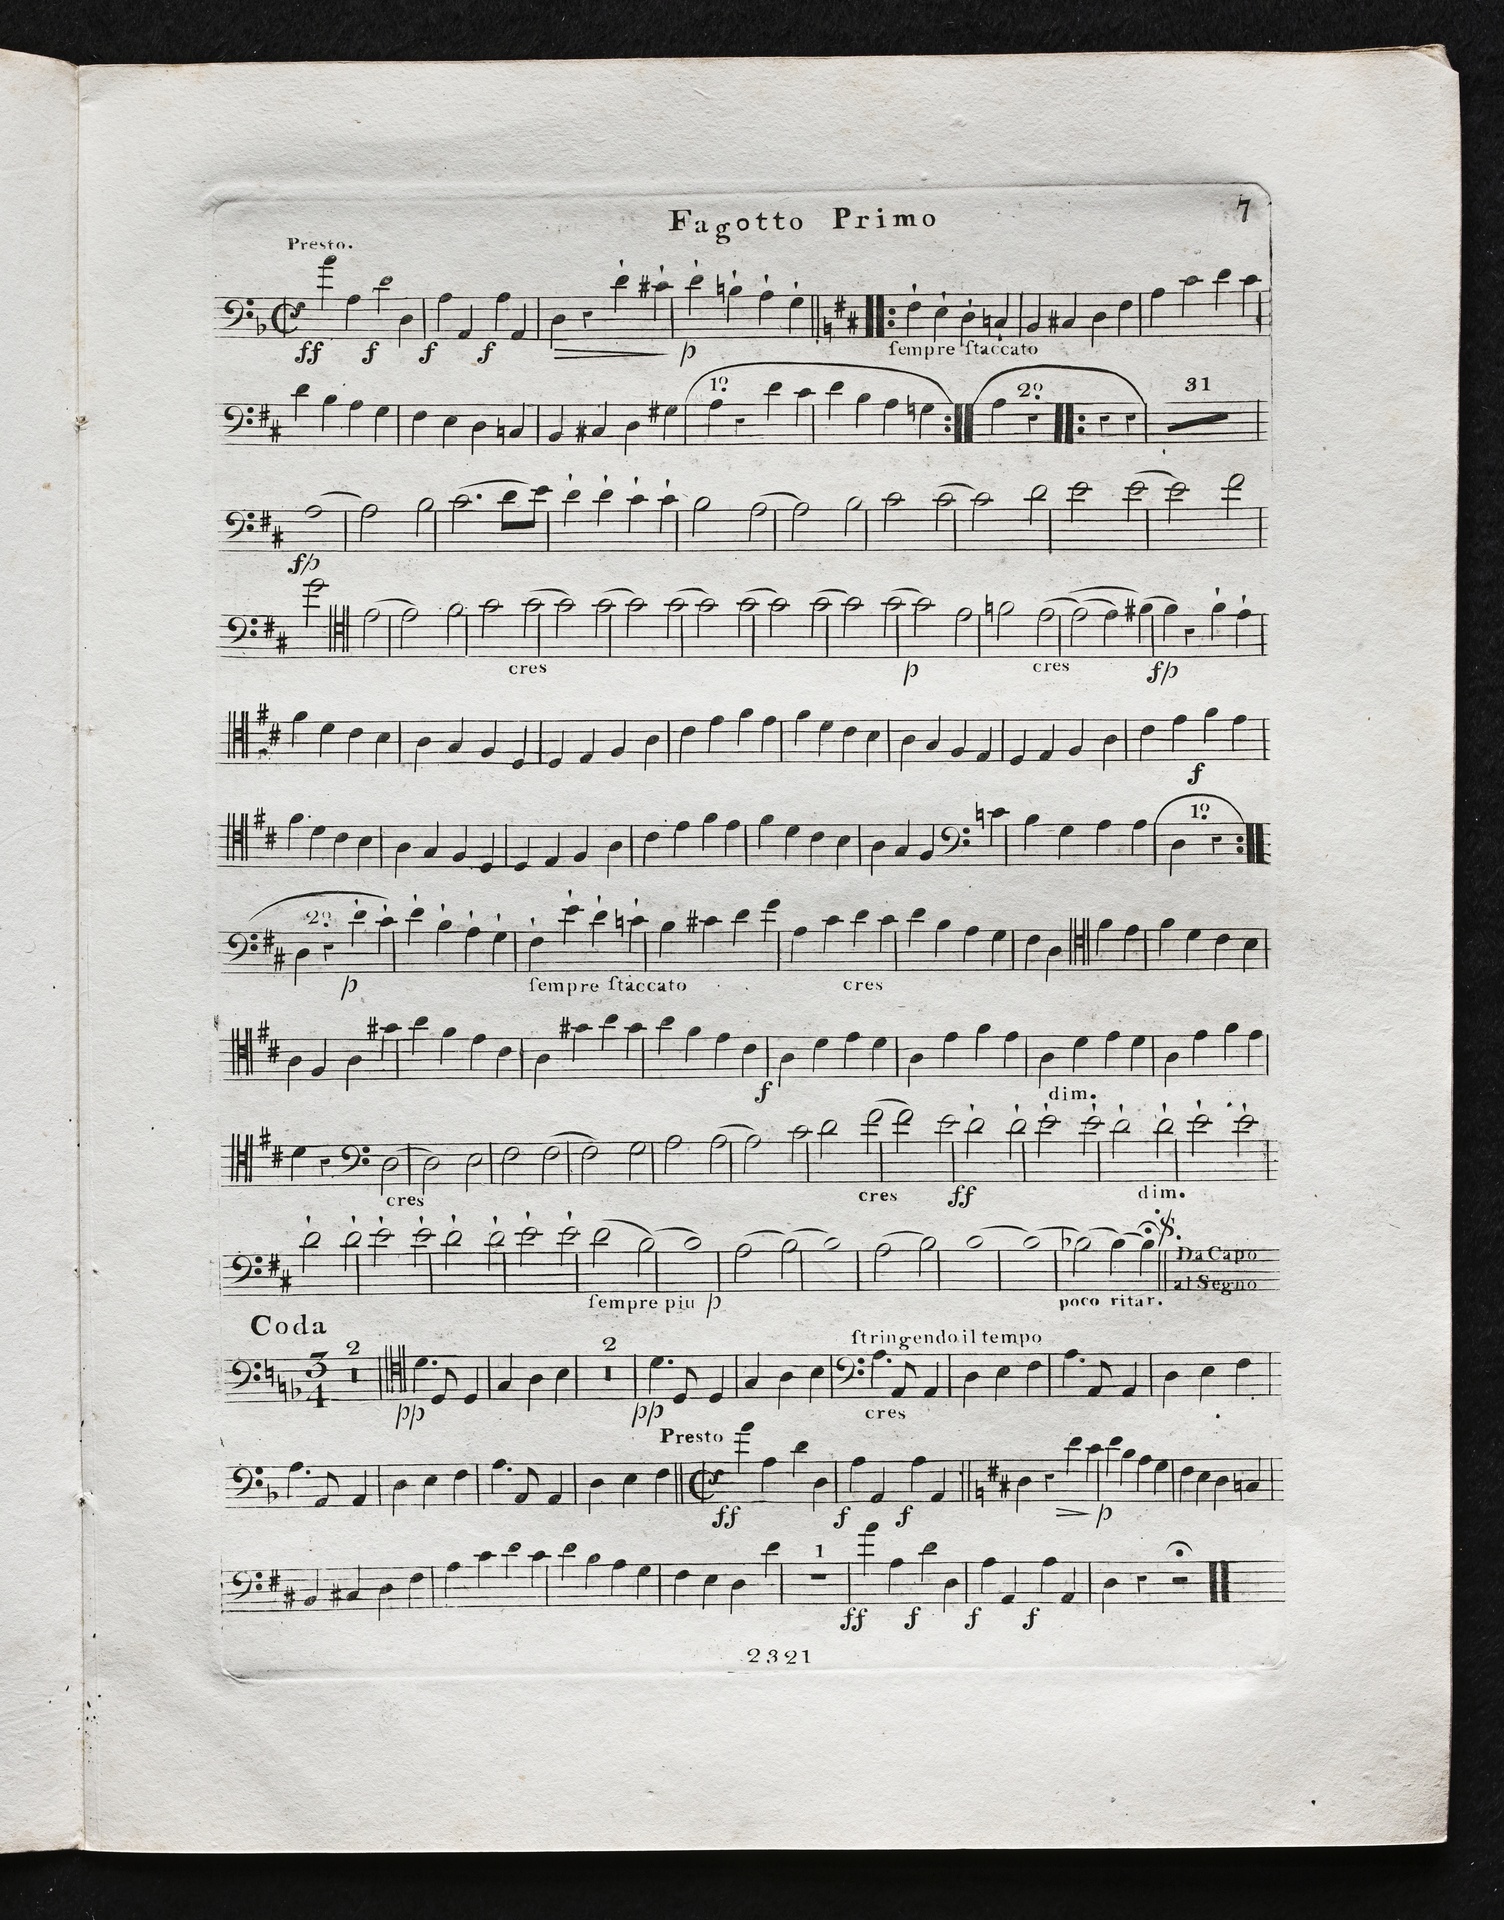 Fagotto Primo
7
Presto.
ff f f f p ſempre ſtaccato
1º 2º 31
fp
cres p cres fp
f
1º
2º
p ſempre ſtaccato cres
f dim.
cres cres ff dim.
Da Capo
al Segno
ſempre piu p poco ritar.
Coda
2 2 ſtringendo il tempo
3
4
pp pp cres
Presto
ff f f p
1
ff f f f
2321